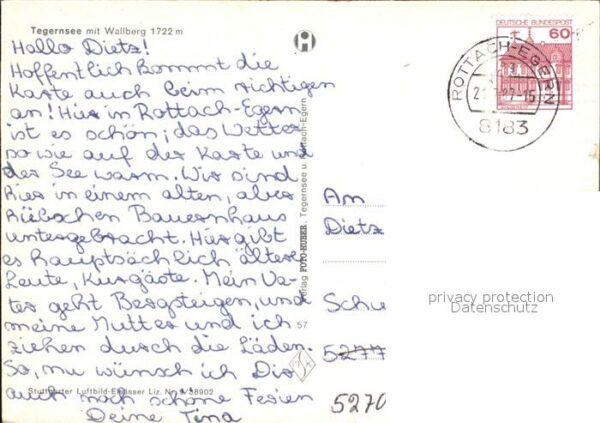 Tegernsee mit Wallberg 1722 m
Hallo Dietz!
Hoffentlich kommt die
Karte auch beim richtigen
an! Hier in Rottach-Egern
ist es schön; das Wetter
so wie auf der Karte und
der See warm. Wir sind
hier in einem alten, aber
hübschen Bauernhaus
untergebracht. Hier gibt
es hauptsächlich ältere
Leute, Kurgäste. Mein Va-
ter geht Bergsteigen, und
meine Mutter und ich
ziehen durch die Läden.
So, nu wünsch ich Dir
auch noch schöne Ferien
Deine Tina
Stuttgarter Luftbild-Elsässer Liz. Nr. 9/38902
Verlag FOTO-HUBER, Tegernsee u. Rottach-Egern
57
DEUTSCHE BUNDESPOST
60
ROTTACH-EGERN
8183
An
Dietz
Schu
5277
5270
privacy protection
Datenschutz